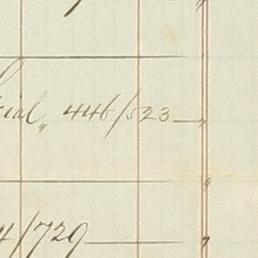 cial, 446/523
4/729